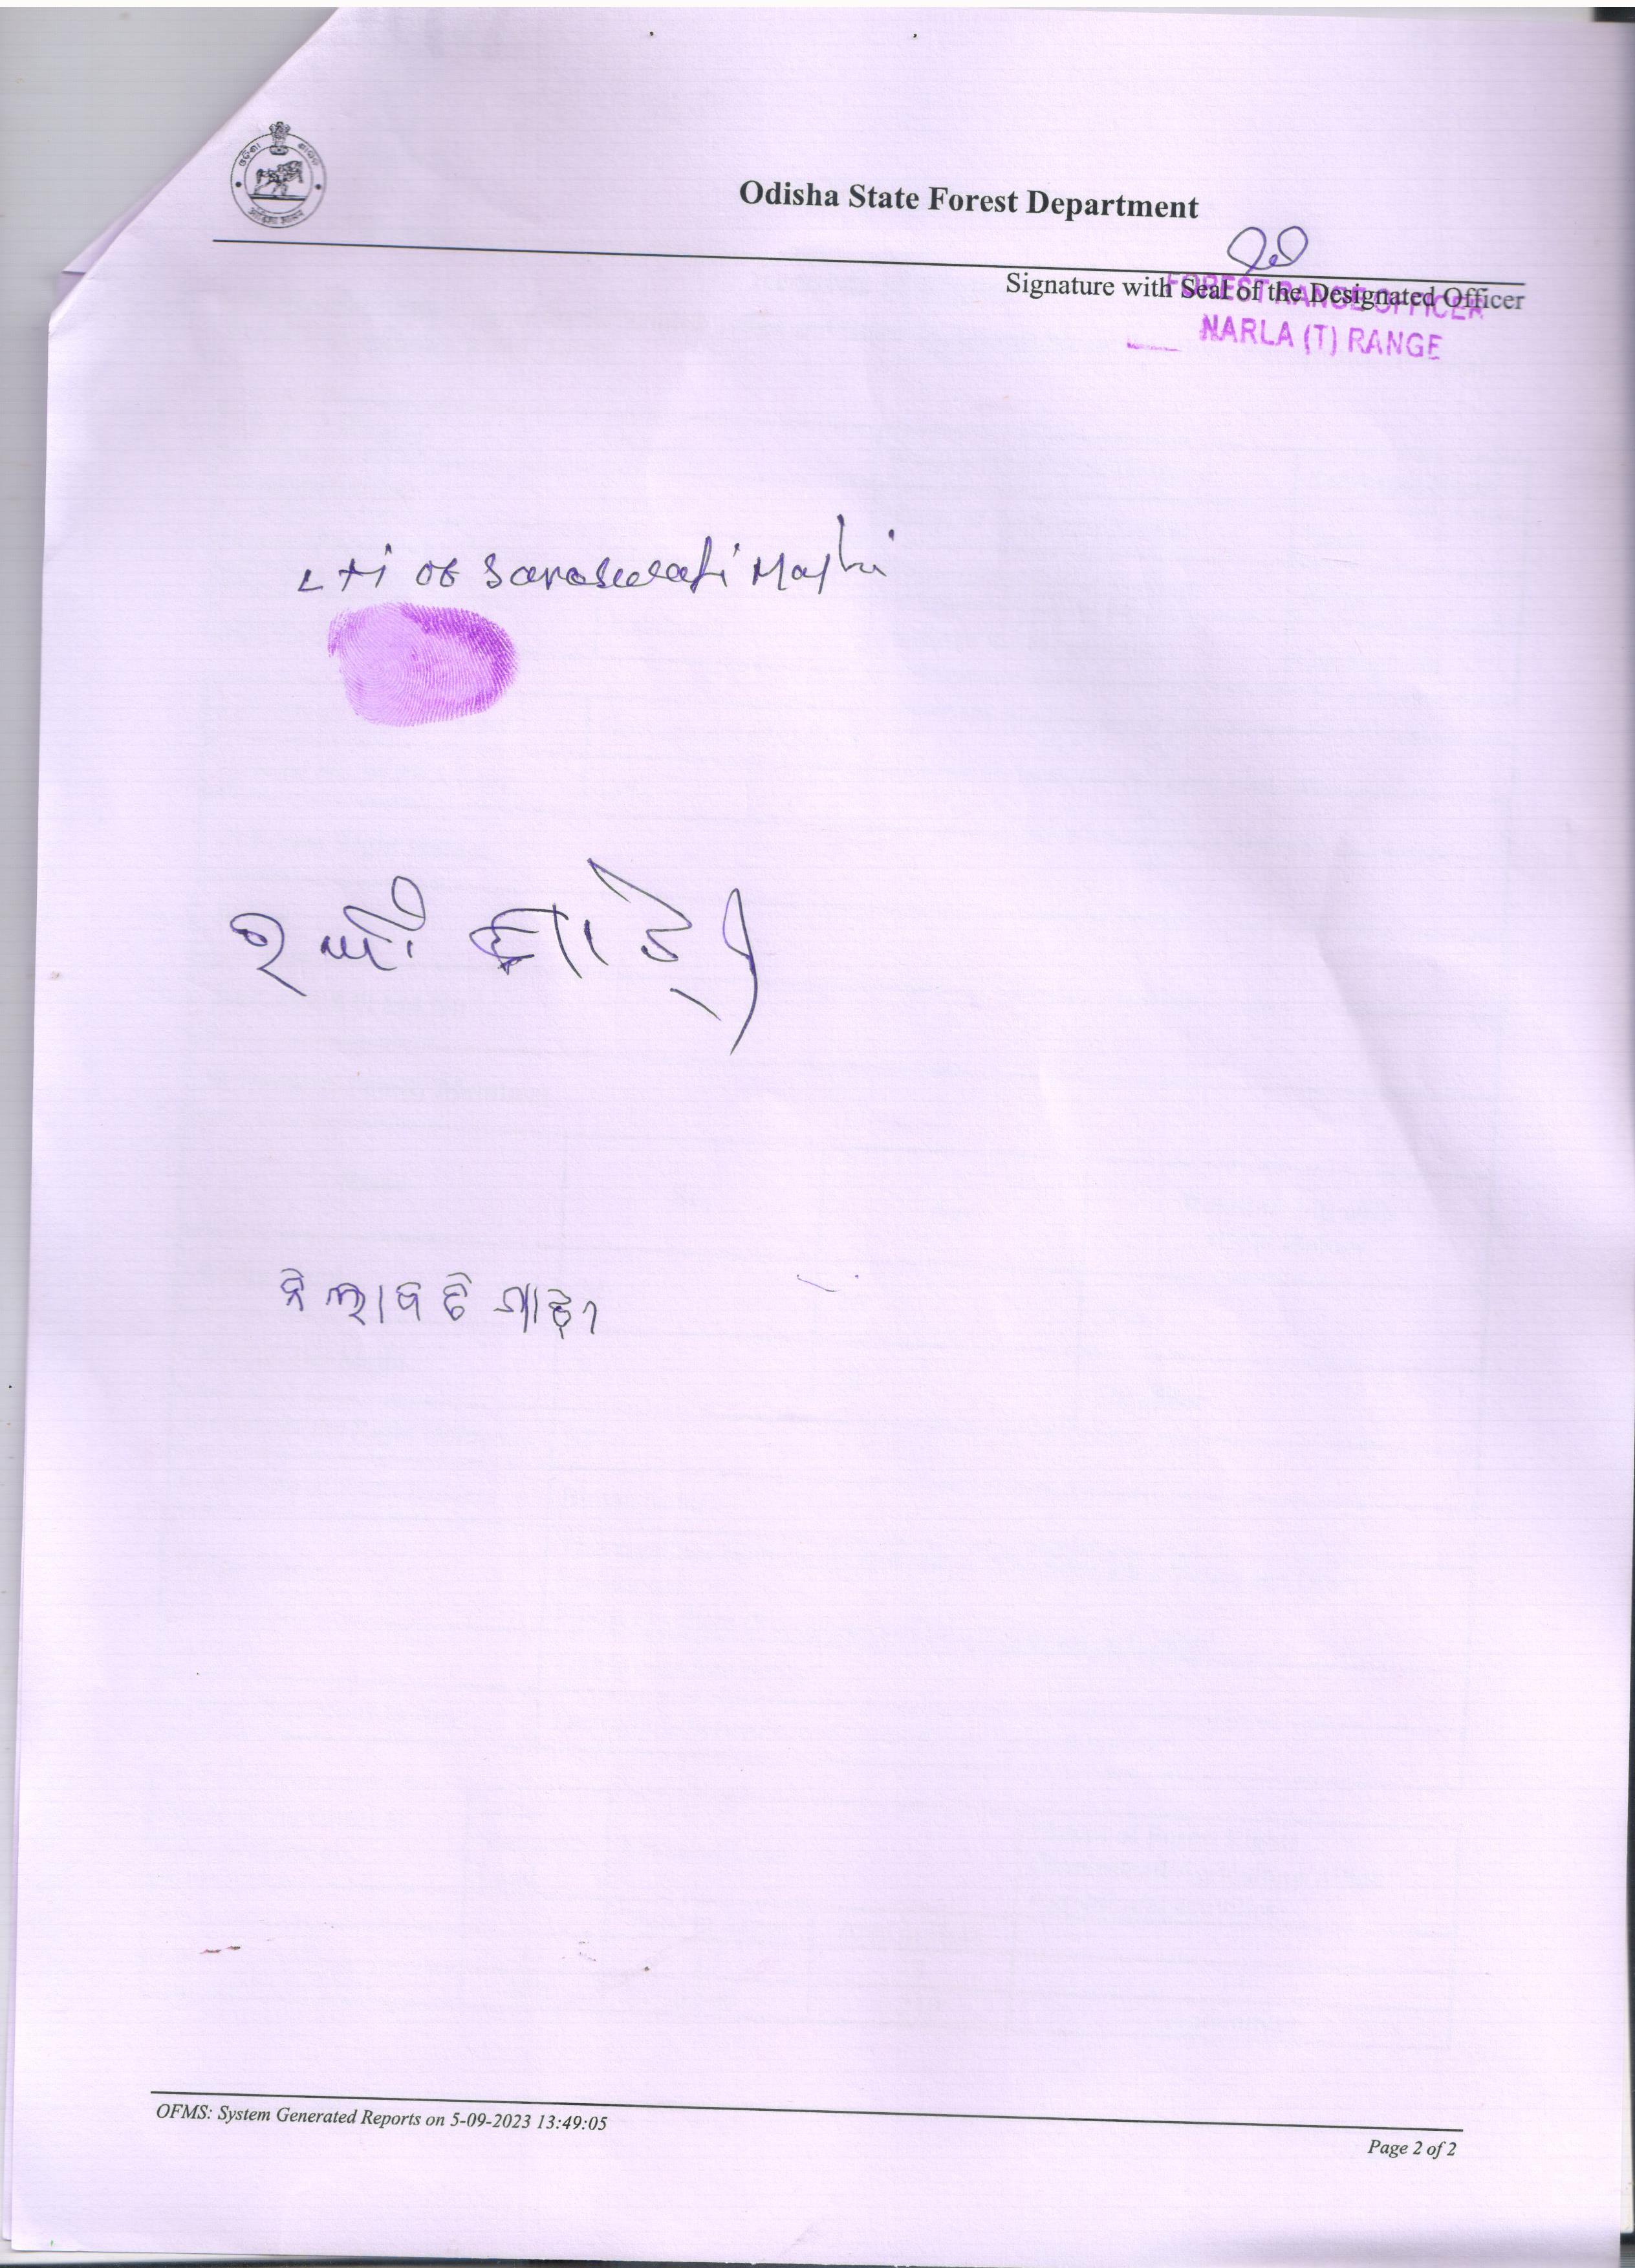 Odisha State Forest Department
Signature with Seal of the Designated Officer
FOREST RANGE OFFICER
NARLA (T) RANGE
LTI of Saraswati Majhi
OFMS: System Generated Reports on 5-09-2023 13:49:05
Page 2 of 2